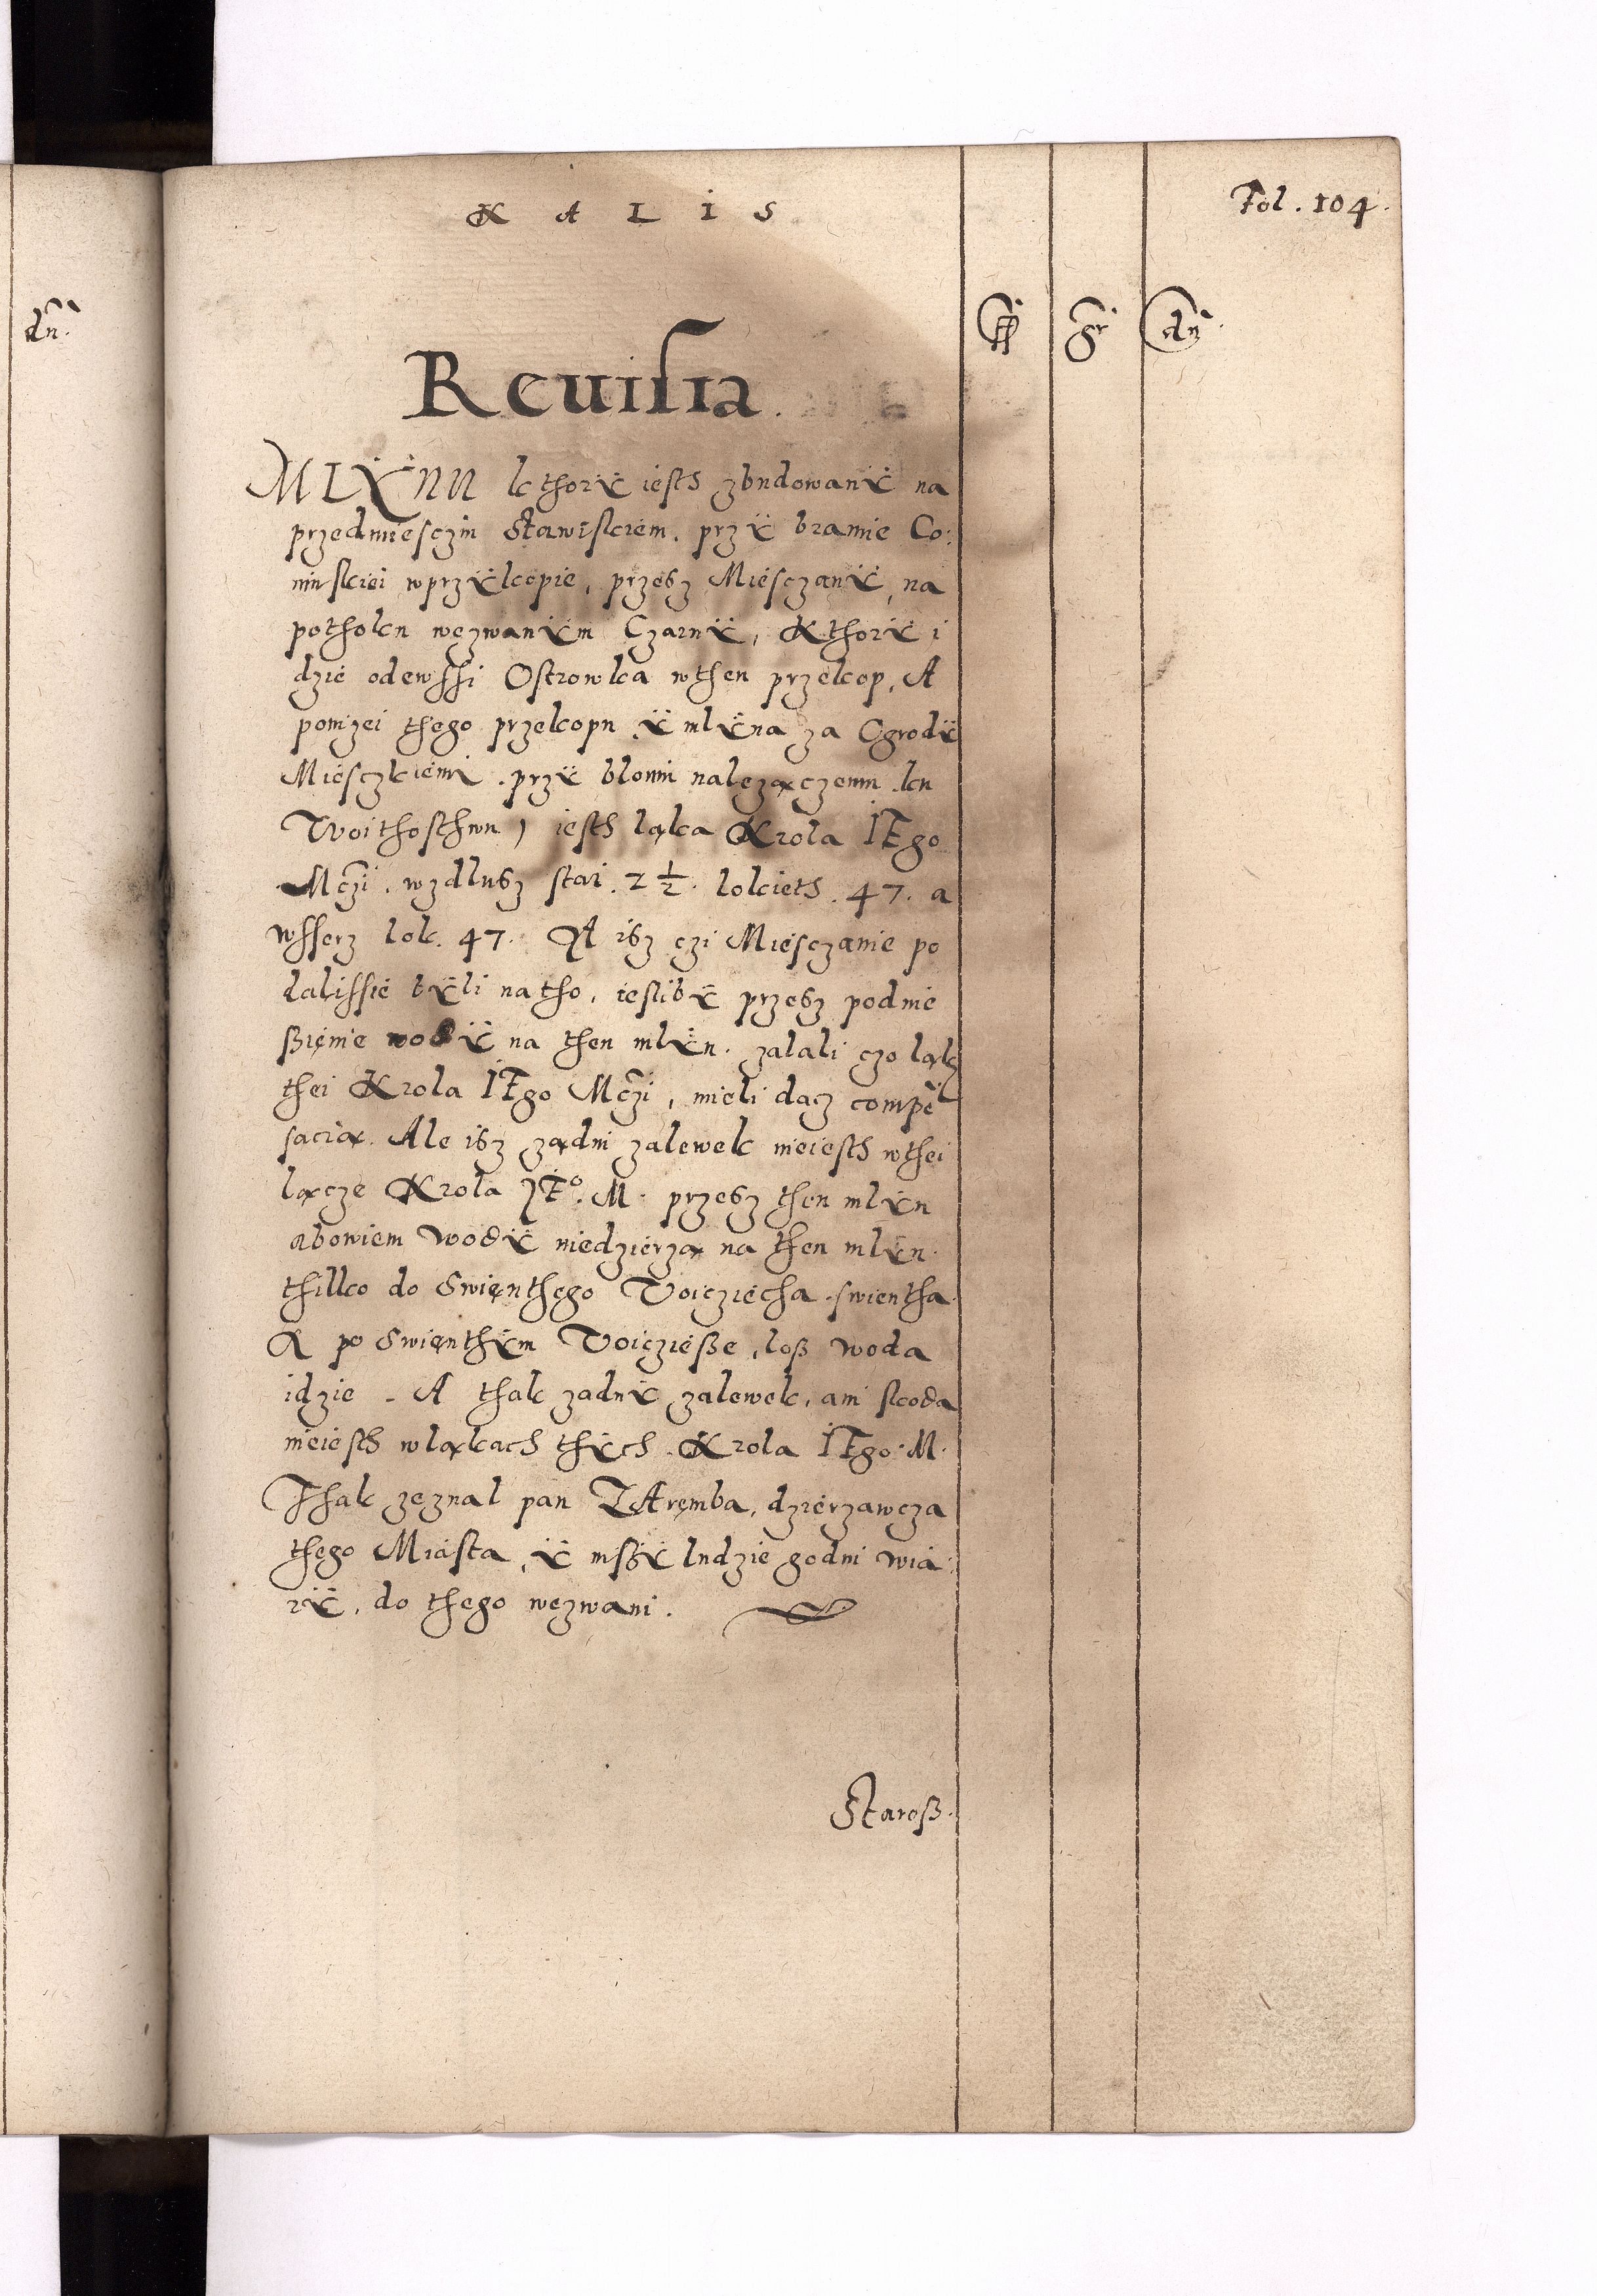 K A L I S
Fol. 104.
dn̄.
fl gr dn̄
Reuisia.
MLYNU kthorÿ iesth zbudowanÿ na
przedmiesczin Stawiskiem. przÿ bramie Co:
ninskiei wprzÿkopie, przesz Miesczanÿ, na
potholcu wezwanÿm Czarnÿ, Kthorÿ i
dzie odewssi Ostrowka wthen przekop, A
ponizei thego przekopu ÿ mlÿna za Ogrodÿ
Miesczkiemi. przÿ bloniu nalezaczemu ku
Woithosthwu) iesth ląka Krola IEgo
Mczi. wzdlusz stai. 2 ½. lokieth. 47. a
wsserz lok. 47. A isz czi Miesczanie po
dalissie bÿli na tho, ieslibÿ przesz podnie
ßięnie wodÿ na then mlÿn. zalali czo ląk
thei Krola IEgo Mczi, mieli dacz compē
sacią. Ale isz żądni zalewek nieiesth wthei
lącze Krola IEº. M. przesz then mlÿn
abowiem wodÿ niedzierzą na then mlÿn.
thilko do Swięnthego Voicziecha swientha.
A po Swięnthÿm Voicziesße, loß woda
idzie - A thak żadnÿ zalewek, ani skoda
nieiesth wląkach thÿch Krola IEgo M.
Thak zeznal pan ZAręmba, dzierzawcza
thego Miasta, ÿ inßÿ ludzie godni wia:
rÿ, do thego wezwani.
Staroß.